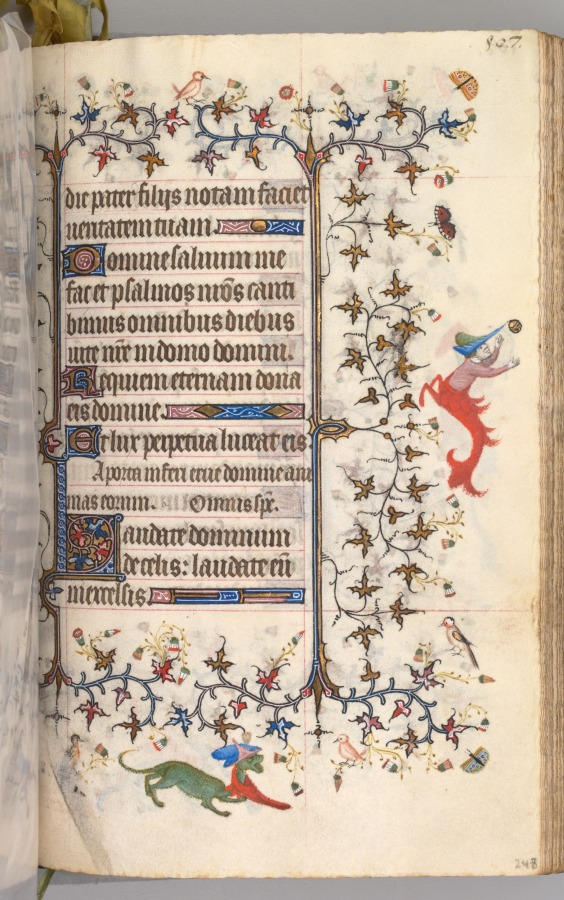 807.
die pater filijs notam faciet
ueritatem tuam.
Domine saluum me
fac et psalmos nr̄os canti
bimus omnibus diebus
uite nr̄e in domo domini.
Requiem eternam dona
eis domine.
Et lux perpetua luceat eis
A porta inferi erue domine ani
mas eorum. Omnis sp̄c.
Laudate dominum
de celis: laudate eū
in excelsis
248